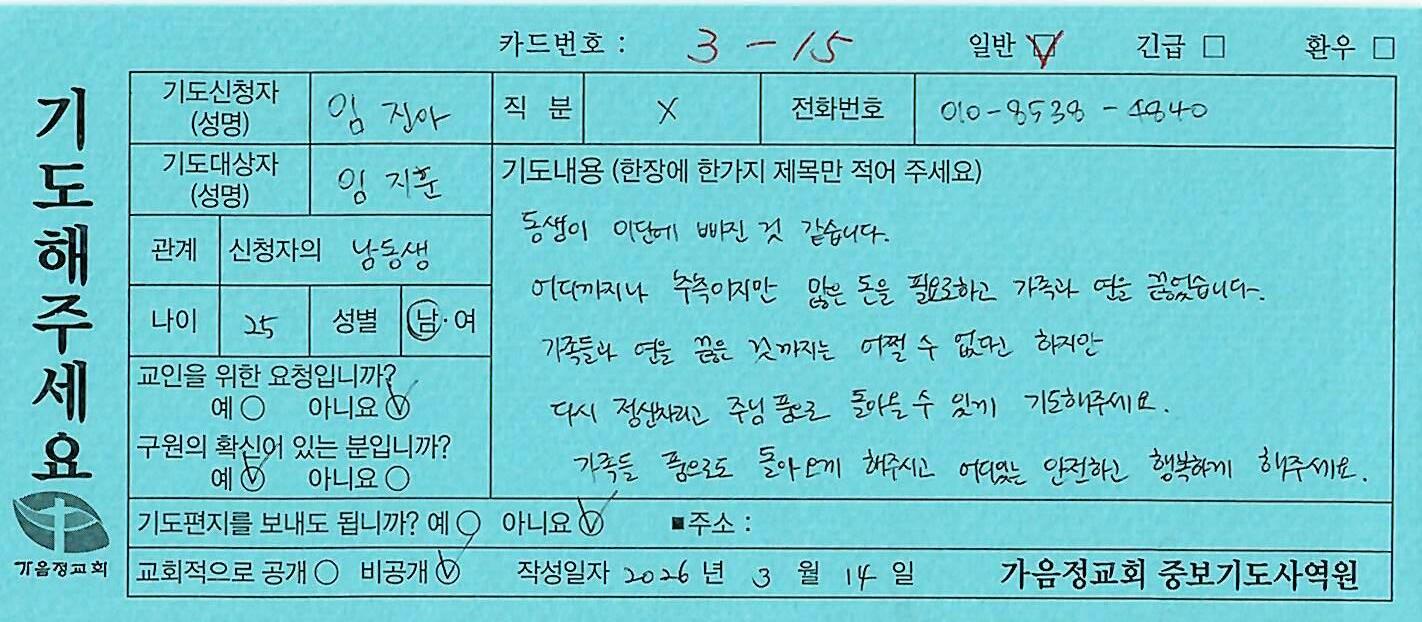 카드번호 : 3 - 15 일반 ☑ 긴급 □ 환우 □
기도해주세요
기도신청자 (성명) 임 진아 직 분 X 전화번호 010-8538-4840
기도대상자 (성명) 임 지훈
관계 신청자의 남동생
나이 25 성별 남·여
교인을 위한 요청입니까?
예 ○ 아니요 ☑
구원의 확신이 있는 분입니까?
예 ☑ 아니요 ○
기도내용 (한장에 한가지 제목만 적어 주세요)
동생이 이단에 빠진 것 같습니다.
어디까지나 추측이지만 많은 돈을 필요로하고 가족과 연을 끊었습니다.
가족들과 연을 끊은 것까지는 어쩔 수 없다만 하지만
다시 정신차리고 주님 품으로 돌아올 수 있게 기도해주세요.
가족들 품으로도 돌아오게 해주시고 어디있든 안전하고 행복하게 해주세요.
기도편지를 보내도 됩니까? 예 ○ 아니요 ☑ ■주소 :
교회적으로 공개 ○ 비공개 ☑ 작성일자 2026 년 3 월 14 일 가음정교회 중보기도사역원
가음정교회